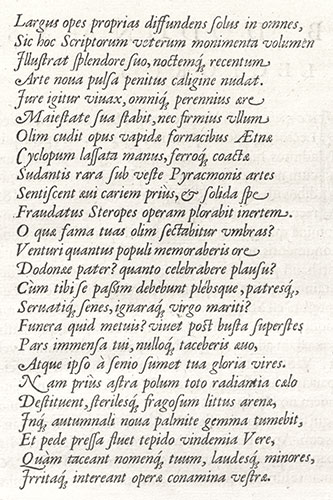 Largus opes proprias diffundens solus in omnes,
Sic hoc Scriptorum veterum monimenta volumen
Illustrat splendore suo, noctemq́, recentum
Arte noua pulsa penitus caligine nudat.
Jure igitur viuax, omniq́, perennius ære
Maiestate sua stabit, nec firmius vllum
Olim cudit opus vapidæ fornacibus Ætnæ
Cyclopum lassata manus, ferroq́, coactæ
Sudantis rara sub veste Pyracmonis artes
Sentiscent æui cariem priùs, & solida spe
Fraudatus Steropes operam plorabit inertem.
O quæ fama tuas olim sectabitur vmbras?
Venturi quantus populi memoraberis ore
Dodonæe pater? quanto celebrabere plausu?
Cùm tibi se passim debebunt plebsque, patresq́,
Seruatiq́, senes, ignaraq́, virgo mariti?
Funera quid metuis? viuet post busta superstes
Pars immensa tui, nulloq́, taceberis æuo,
Atque ipso à senio sumet tua gloria vires.
Nam priùs astra polum toto radiantia cælo
Destituent, sterilesq́, fragosum littus arenæ,
Jnq́, autumnali noua palmite gemma tumebit,
Et pede pressa fluet tepido vindemia Vere,
Quàm taceant nomenq́, tuum, laudesq́, minores,
Jrritaq́, intereant operæ conamina vestræ.